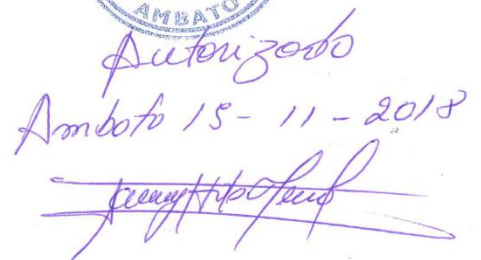 AMBATO
Autorizado
Ambato 15-11-2018